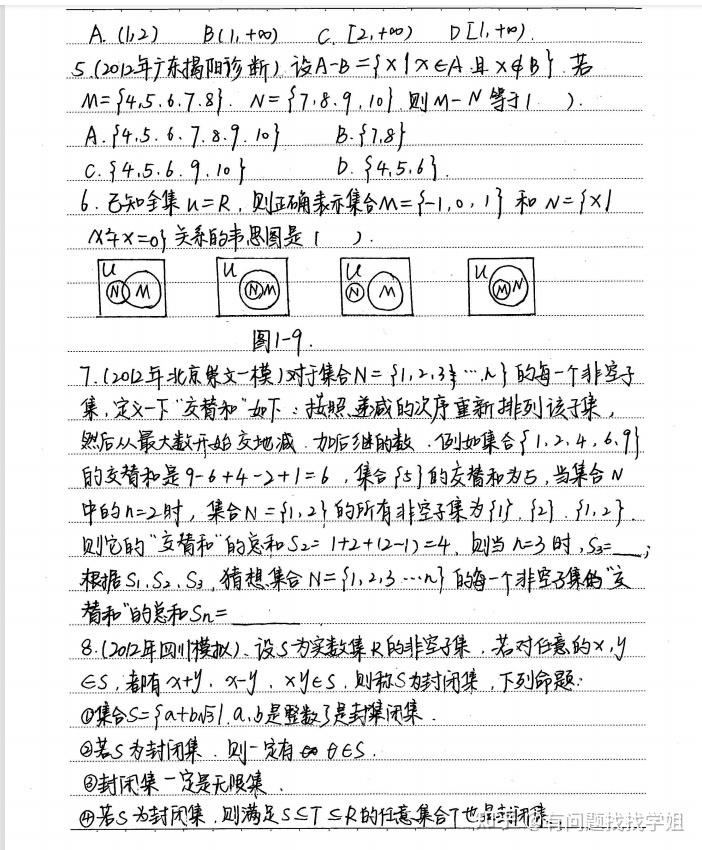 A. (1,2) B(1,+∞) C. [2,+∞) D[1,+∞).
5.(2012年广东揭阳诊断)设A-B={x|x∈A且x∉B}.若
M={4,5.6.7.8}. N={7.8.9.10}.则M-N等于( ).
A.{4.5.6.7.8.9.10} B.{7,8}
C.{4,5.6.9.10} D.{4,5,6}.
6.已知全集U=R,则正确表示集合M={-1,0,1}和N={x|
x²+x=0}关系的韦恩图是( ).
U N M U N M U N M U M N
图1-9.
7.(2012年北京崇文一模)对于集合N={1,2,3,…,n}的每一个非空子
集,定义一下"交替和"如下:按照递减的次序重新排列该子集,
然后从最大数开始交地减.加后继的数.例如集合{1,2,4,6,9}
的交替和是9-6+4-2+1=6,集合{5}的交替和为5,当集合N
中的n=2时,集合N={1,2}的所有非空子集为{1}.{2}.{1,2}.
则它的"交替和"的总和S2=1+2+(2-1)=4.则当n=3时,S3=___;
根据S1.S2.S3,猜想集合N={1,2,3…n}的每一个非空子集的"交
替和"的总和Sn=______
8.(2012年四川模拟).设S为实数集R的非空子集.若对任意的x,y
∈S,都有x+y.x-y.xy∈S.则称S为封闭集.下列命题:
①集合S={a+b√3|.a,b是整数}是封闭集.
②若S为封闭集.则一定有0∈S.
③封闭集一定是无限集.
④若S为封闭集.则满足S⊆T⊆R的任意集合T也是封闭集.
知乎 @有问题找找学姐